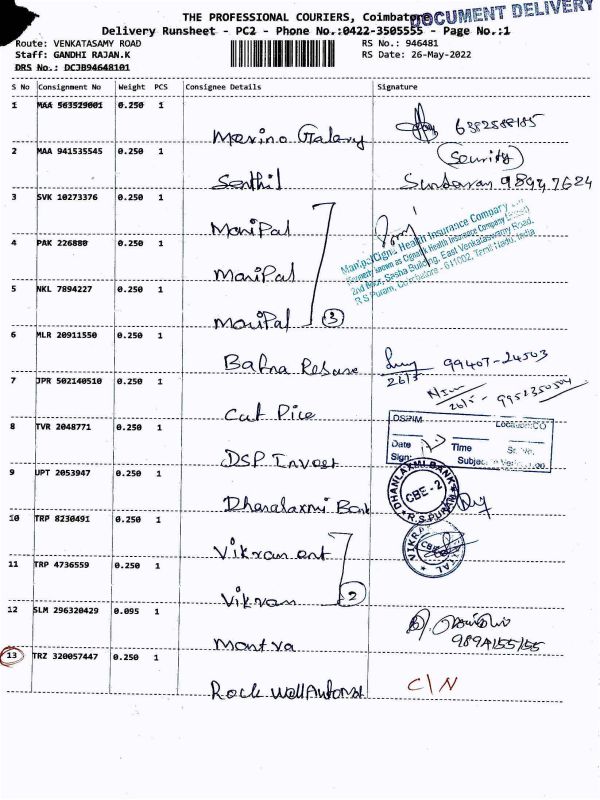 THE PROFESSIONAL COURIERS, Coimbatore
DOCUMENT DELIVERY
Delivery Runsheet - PC2 - Phone No.:0422-3505555 - Page No.:1
Route: VENKATASAMY ROAD RS No.: 946481
Staff: GANDHI RAJAN.K RS Date: 26-May-2022
DRS No.: DCJB94648101
S No Consignment No Weight PCS Consignee Details Signature
1 MAA 563529001 0.250 1
2 MAA 941535545 0.250 1 (Security)
Senthil
3 SVK 10273376 0.250 1
ManiPal
ManipalCigna Health Insurance Company
2nd Floor, Sesha Building, East Venkataswamy Road,
R S Puram, Coimbatore - 611002, Tamil Nadu, India
4 PAK 226880 0.250 1
ManiPal
5 NKL 7894227 0.250 1
ManiPal 3
6 MLR 20911550 0.250 1
Bafna 99407-24503
26/5
7 JPR 502140510 0.250 1
26/5 - 9952350504
Cut Pice
8 TVR 2048771 0.250 1
DSPIM
Date Time
Sign:
DSP Invest
9 UPT 2053947 0.250 1
DHANLAXMI BANK
CBE - 2
R.S.PURAM
Dhanalaxmi Bank
10 TRP 8230491 0.250 1
11 TRP 4736559 0.250 1
Vikran 2
12 SLM 296320429 0.095 1
9894155155
Mantra
13 TRZ 320057447 0.250 1
C\N
Rock Well